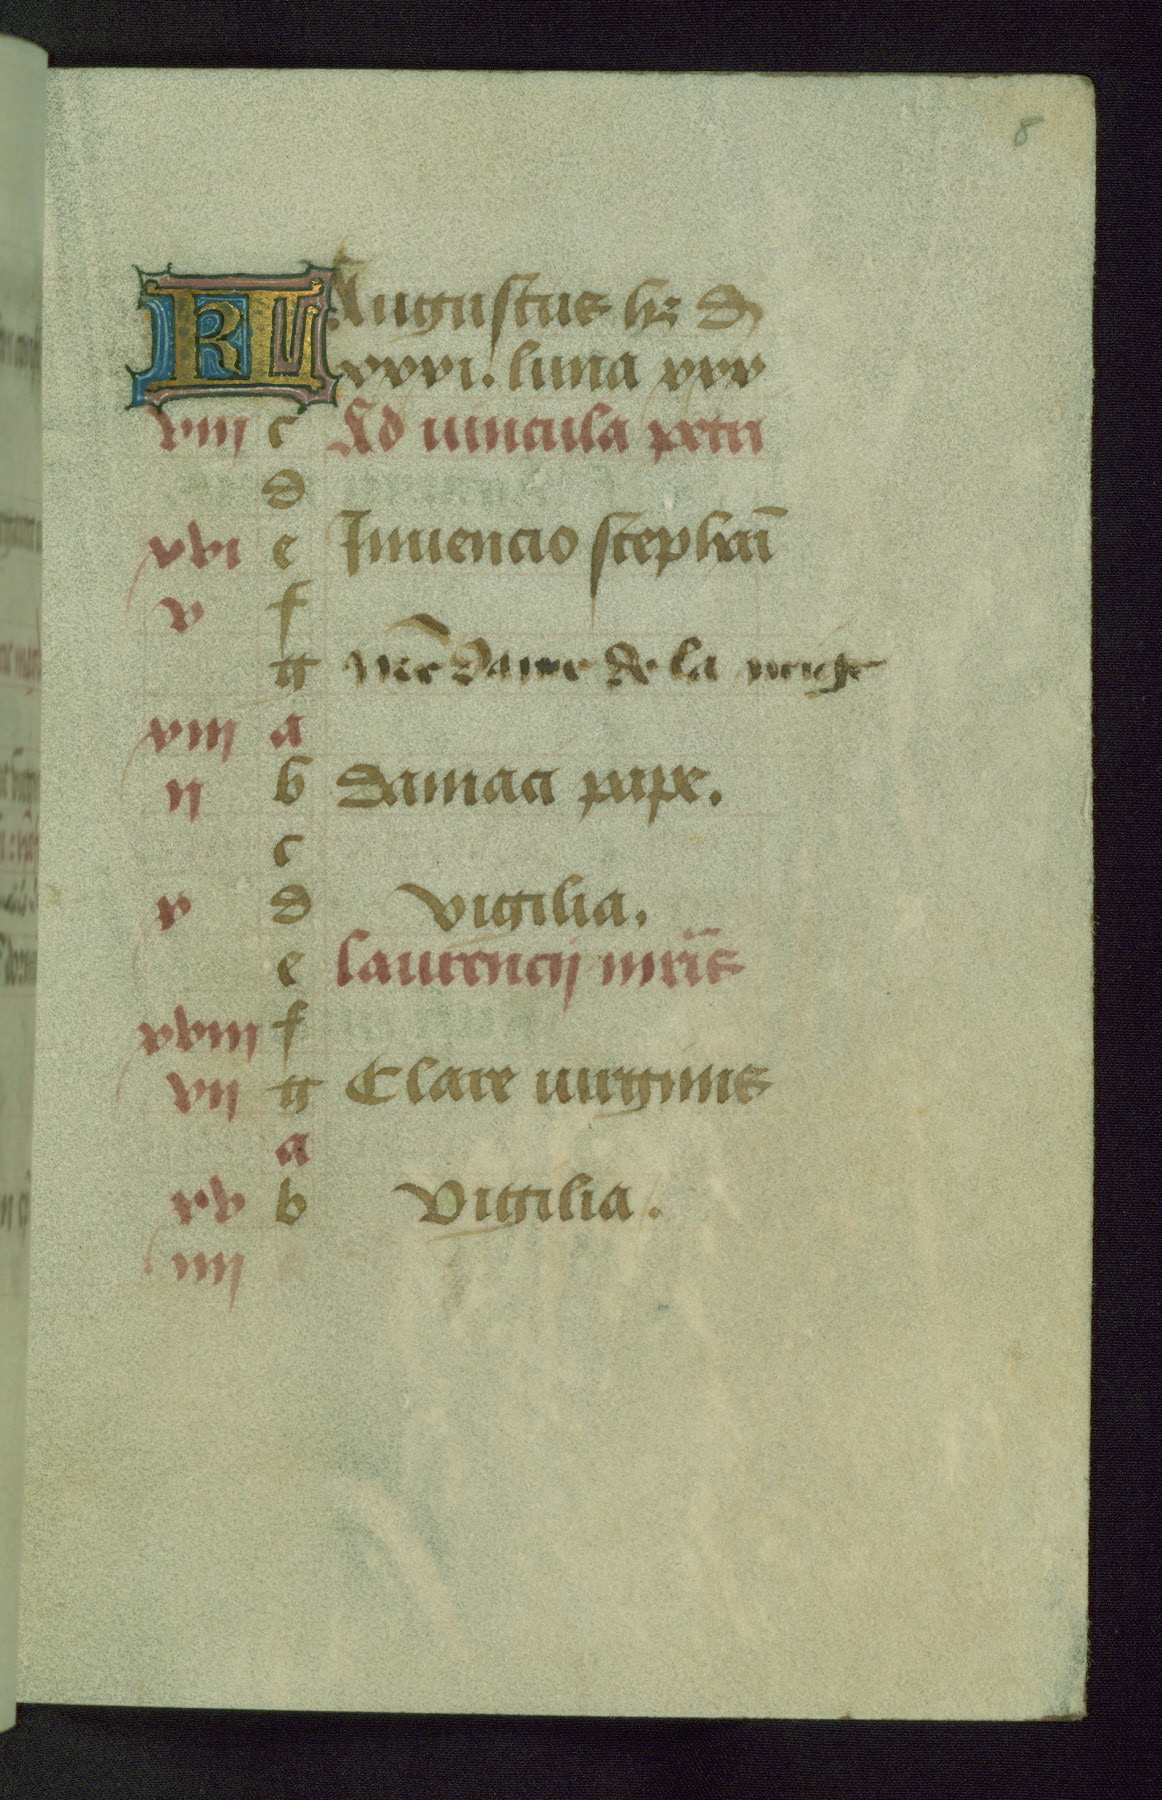 8
KL Augustus hꝫ d
xxxi. luna xxx
viii c Ad uincula petri
d
xvi e Inuencio stephaī
v f
g nr̄e dame de la neige
xiii a
ii b damaci pape.
c
x d vigilia.
e laurencij mr̄is
xviii f
vii g Clare uirginis
a
xv b vigilia.
iiii